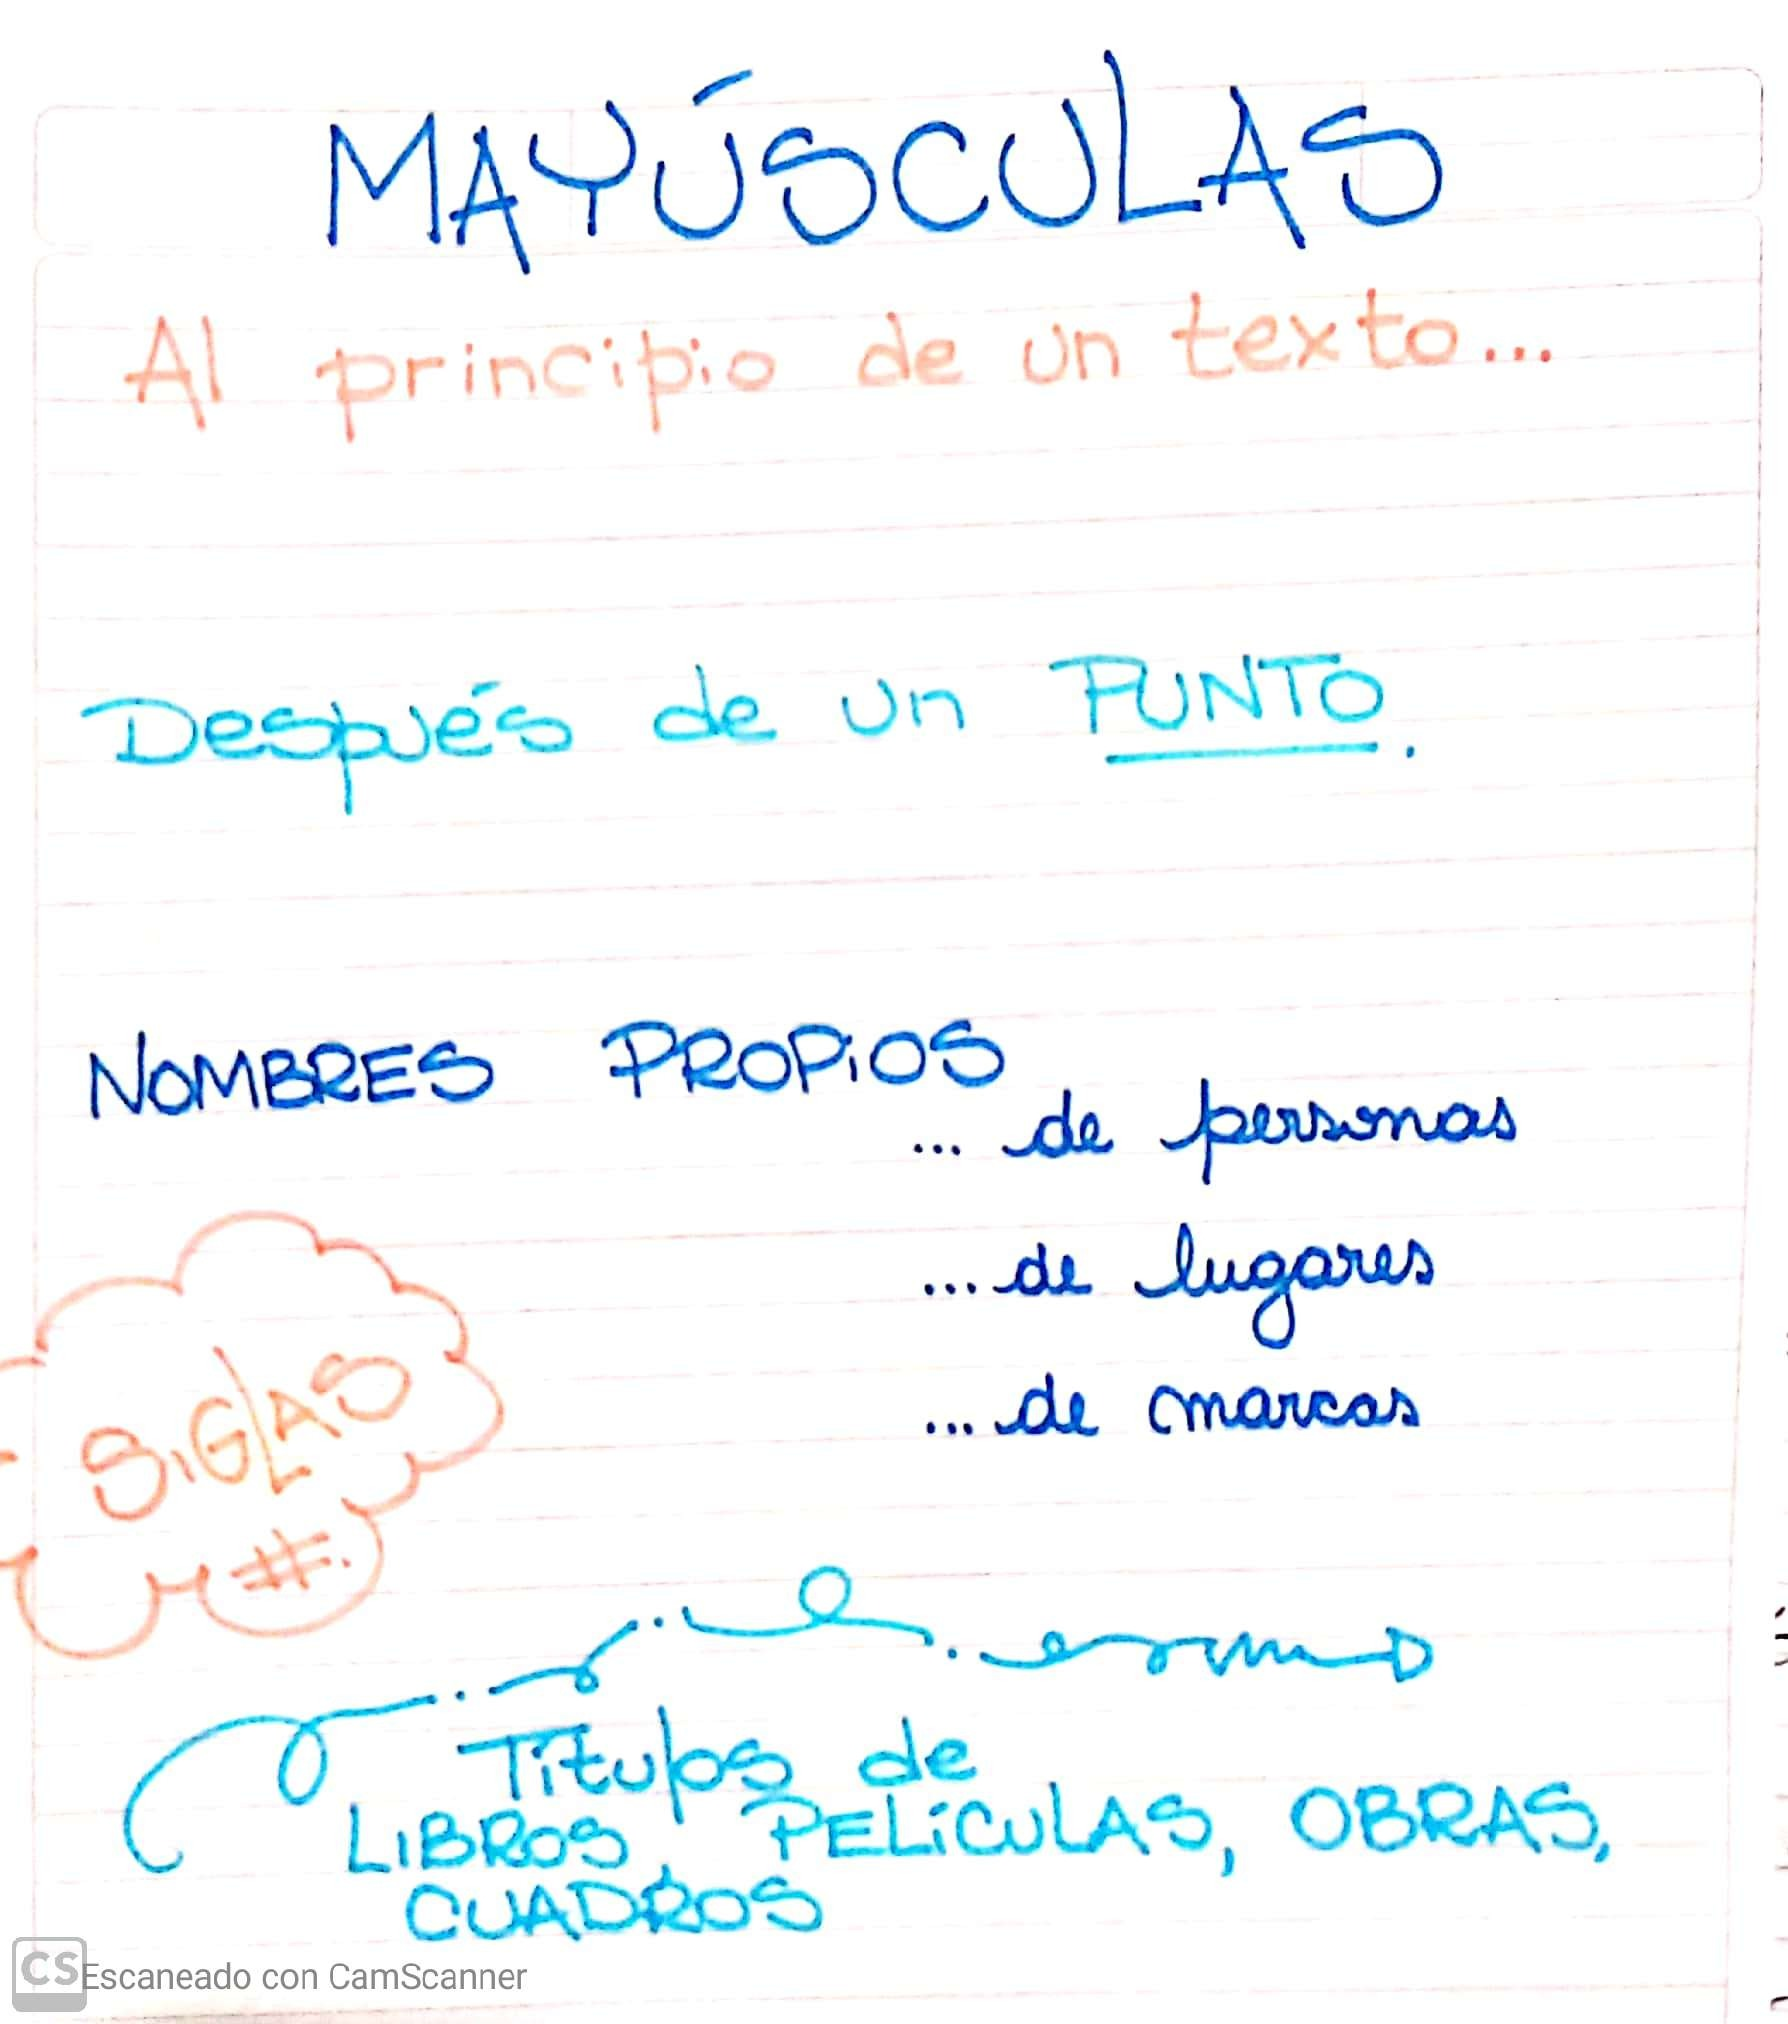 MAYÚSCULAS
Al principio de un texto...
Después de un PUNTO.
NOMBRES PROPIOS
... de personas
... de lugares
... de marcas
SIGLAS
#.
Títulos de
LIBROS, PELÍCULAS, OBRAS,
CUADROS
CS Escaneado con CamScanner